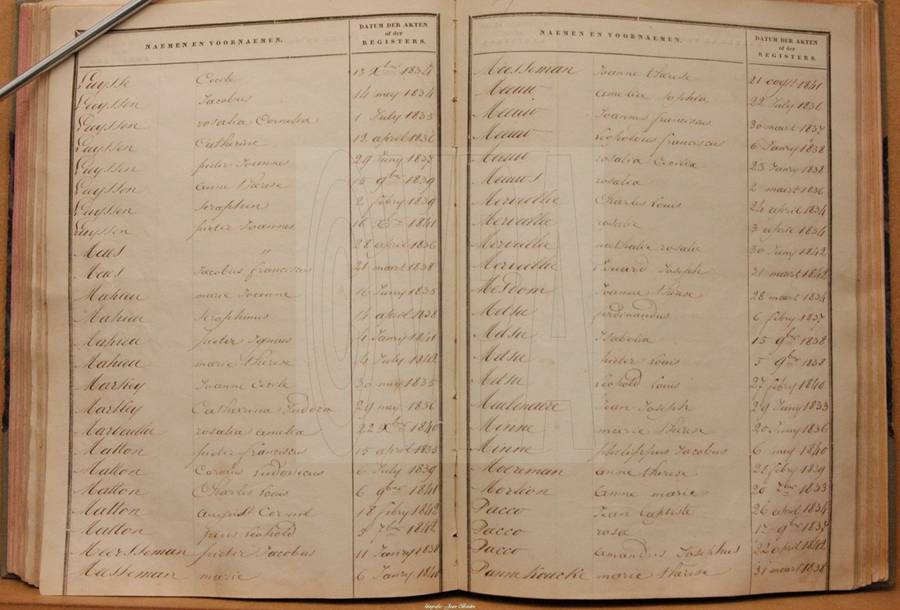 NAEMEN EN VOORNAEMEN.
DATUM DER AKTEN
of der
REGISTERS.
Luysse Cecile 13 Xbre 1834
Luyssen Jacobus 14 mey 1834
Luyssen rosalia Cornelia 1 July 1835
Luyssen Catherine 12 april 1836
Luyssen pieter Joannes 29 Juny 1837
Luyssen anne thérèse 15 9bre 1839
Luyssen Seraphin 2 febry 1839
Luyssen pieter Joannes 16 Xbre 1841
Maes " 28 april 1836
Maes Jacobus franciscus 21 maart 1838
Mahieu marie Joanne 16 Juny 1835
Mahieu Seraphinus 14 april 1838
Mahieu pieter 4 Janry 1841
Mahieu marie thérèse 4 July 1842
Markey Joanne Cecile 30 mey 1835
Markey Catharina 29 mey 1836
rosalia amelia 22 Xbre 1840
Matton pieter franciscus 15 april 1835
Matton Carolus Ludovicus 6 July 1839
Matton Charles Louis 6 9bre 1841
Matton august 18 febry 1842
Matton Leopold 2 7bre 1842
Meersseman pieter Jacobus 11 Janry 1838
Masseman marie 6 Janry 1840
NAEMEN EN VOORNAEMEN.
DATUM DER AKTEN
of der
REGISTERS.
Masseman Joanne thérèse 21 oogst 1841
amelia sophia 22 July 1836
Joannes franciscus 30 maart 1837
Leopoldus franciscus 6 Janry 1838
rosalia Cecilia 23 Janry 1838
rosalia 2 maart 1836
Merveillie Charles Louis 24 april 1834
Merveillie 3 april 1834
Merveillie nathalie rosalie 30 Juny 1842
Merveillie Eduard Joseph 31 maart 1842
Mesdom Joanne thérèse 28 maart 1834
ferdinandus 6 febry 1837
Isabella 15 9bre 1838
pieter Louis 5 9bre 1838
Leopold Louis 27 febry 1840
Meulenaere Jean Joseph 29 Juny 1833
Minne marie thérèse 20 Juny 1836
Minne philippus Jacobus 6 mey 1840
Moereman anne thérèse 22 febry 1839
Mortion anne marie 26 7bre 1833
Pacco Jean Baptiste 26 april 1834
Pacco rosa 17 9bre 1837
Pacco amandus Josephus 22 april 1842
Pannekoucke marie thérèse 31 maart 1838